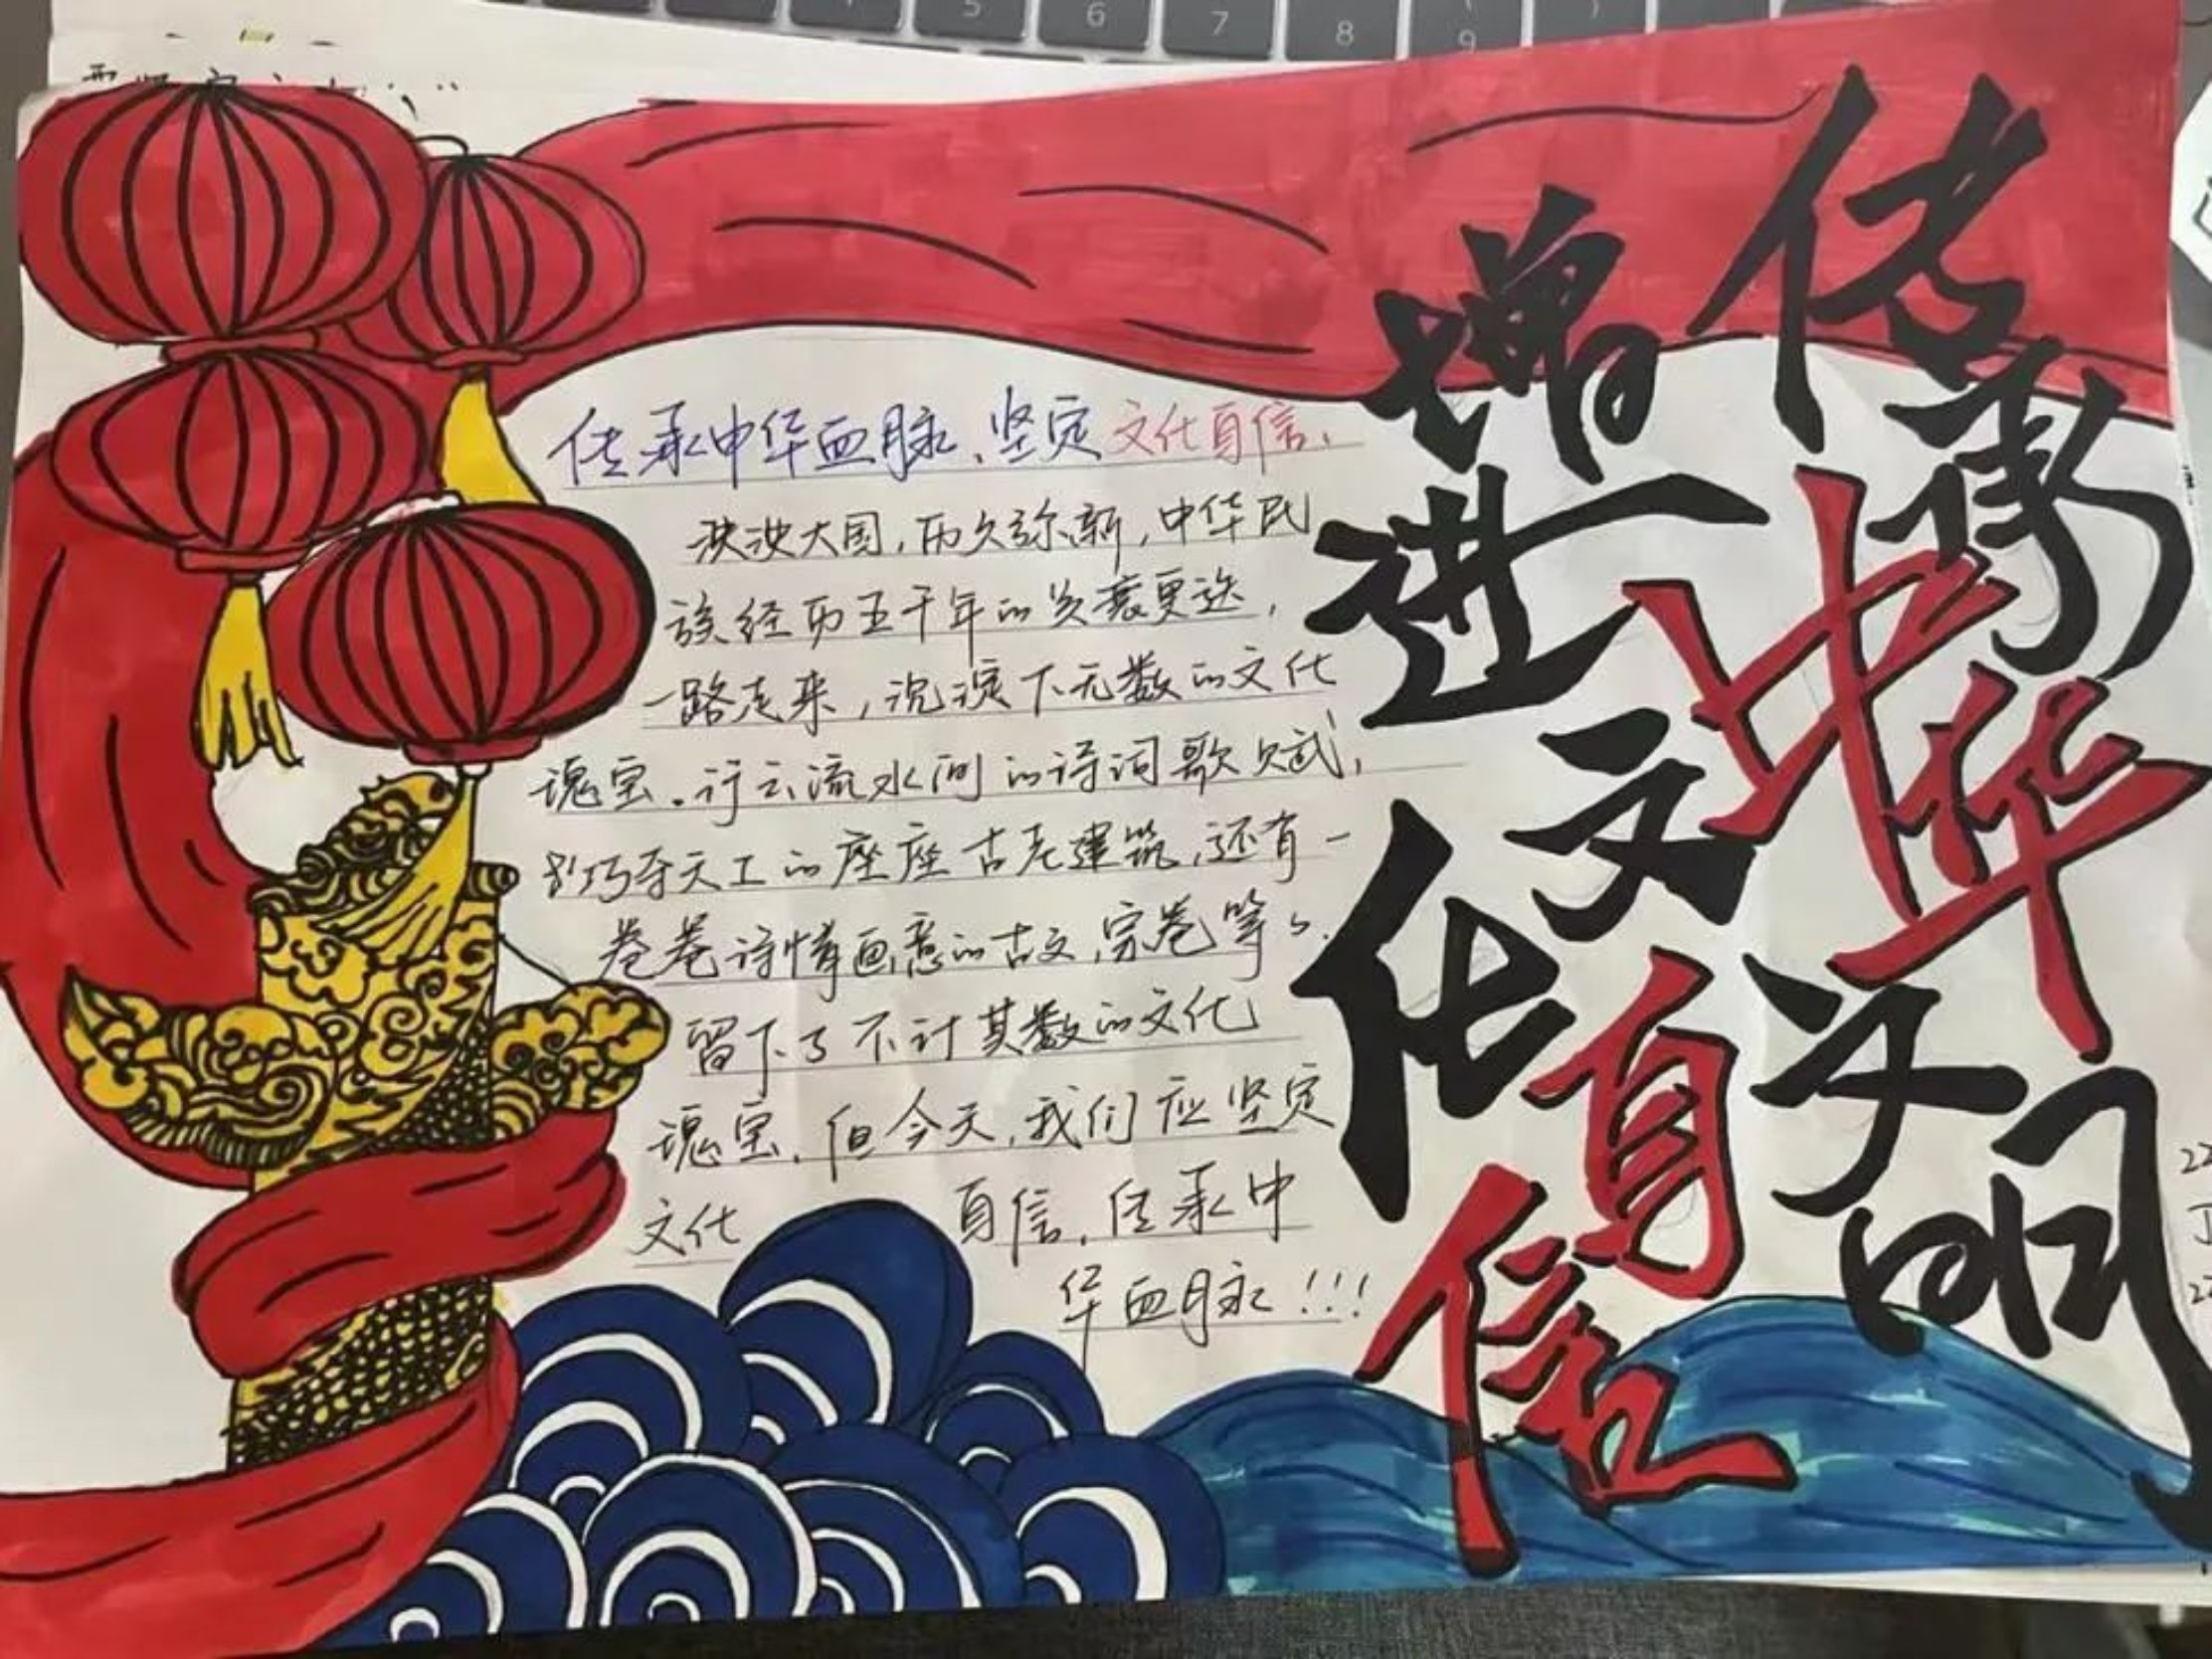 传承中华文明
增进文化自信
传承中华血脉、坚定文化自信、
泱泱大国,历久弥新,中华民
族经历五千年的兴衰更迭,
一路走来,沉淀下无数的文化
瑰宝.行云流水间的诗词歌赋,
到巧夺天工的座座古老建筑,还有一
卷卷诗情画意的古文,
留下了不计其数的文化
瑰宝.但今天,我们应坚定
文化 自信,传承中
华血脉!!!
5
6
7
8
9